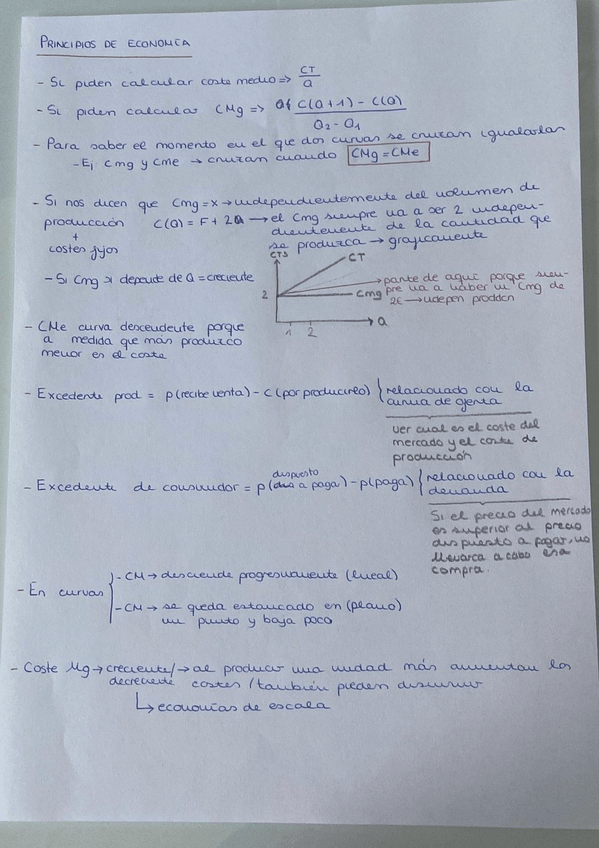 PRINCIPIOS DE ECONOMICA
- Si piden calcular coste medio => CT/Q
- Si piden calcular CMg => C(Q+1) - C(Q) / Q2 - Q1
- Para saber el momento en el que dos curvas se cruzan igualarlas
- Ej cmg y cme → cruzan cuando CMg = CMe
- Si nos dicen que Cmg = x → independientemente del volumen de
producción C(Q) = F + 2Q → el Cmg siempre va a ser 2 indepen-
+ dientemente de la cantidad que
costes fijos se produzca → graficamente
CTS
CT
- Si Cmg si depende de Q = creciente
parte de aqui porque siem-
pre va a haber un Cmg de
2€ → indepen prodden
2
Cmg
Q
1 2
- CMe curva descendente porque
a medida que mas produzco
menor es el coste
- Excedente prod = p(recibe venta) - c(por producirlo) relacionado con la
curva de oferta
ver cual es el coste del
mercado y el coste de
producción
- Excedente de consumidor = p( dispuesto a paga) - p(paga) relacionado con la
demanda
Si el precio del mercado
es superior al precio
dispuesto a pagar, no
llevara a cabo esa
compra.
- En curvas
- CM → desciende progresivamente (lineal)
- CM → se queda estancado en (plano)
un punto y baja poco
- Coste Mg → creciente/ → al producir una unidad más aumentan los
decreciente costes / también pueden disminuir
↳ economías de escala